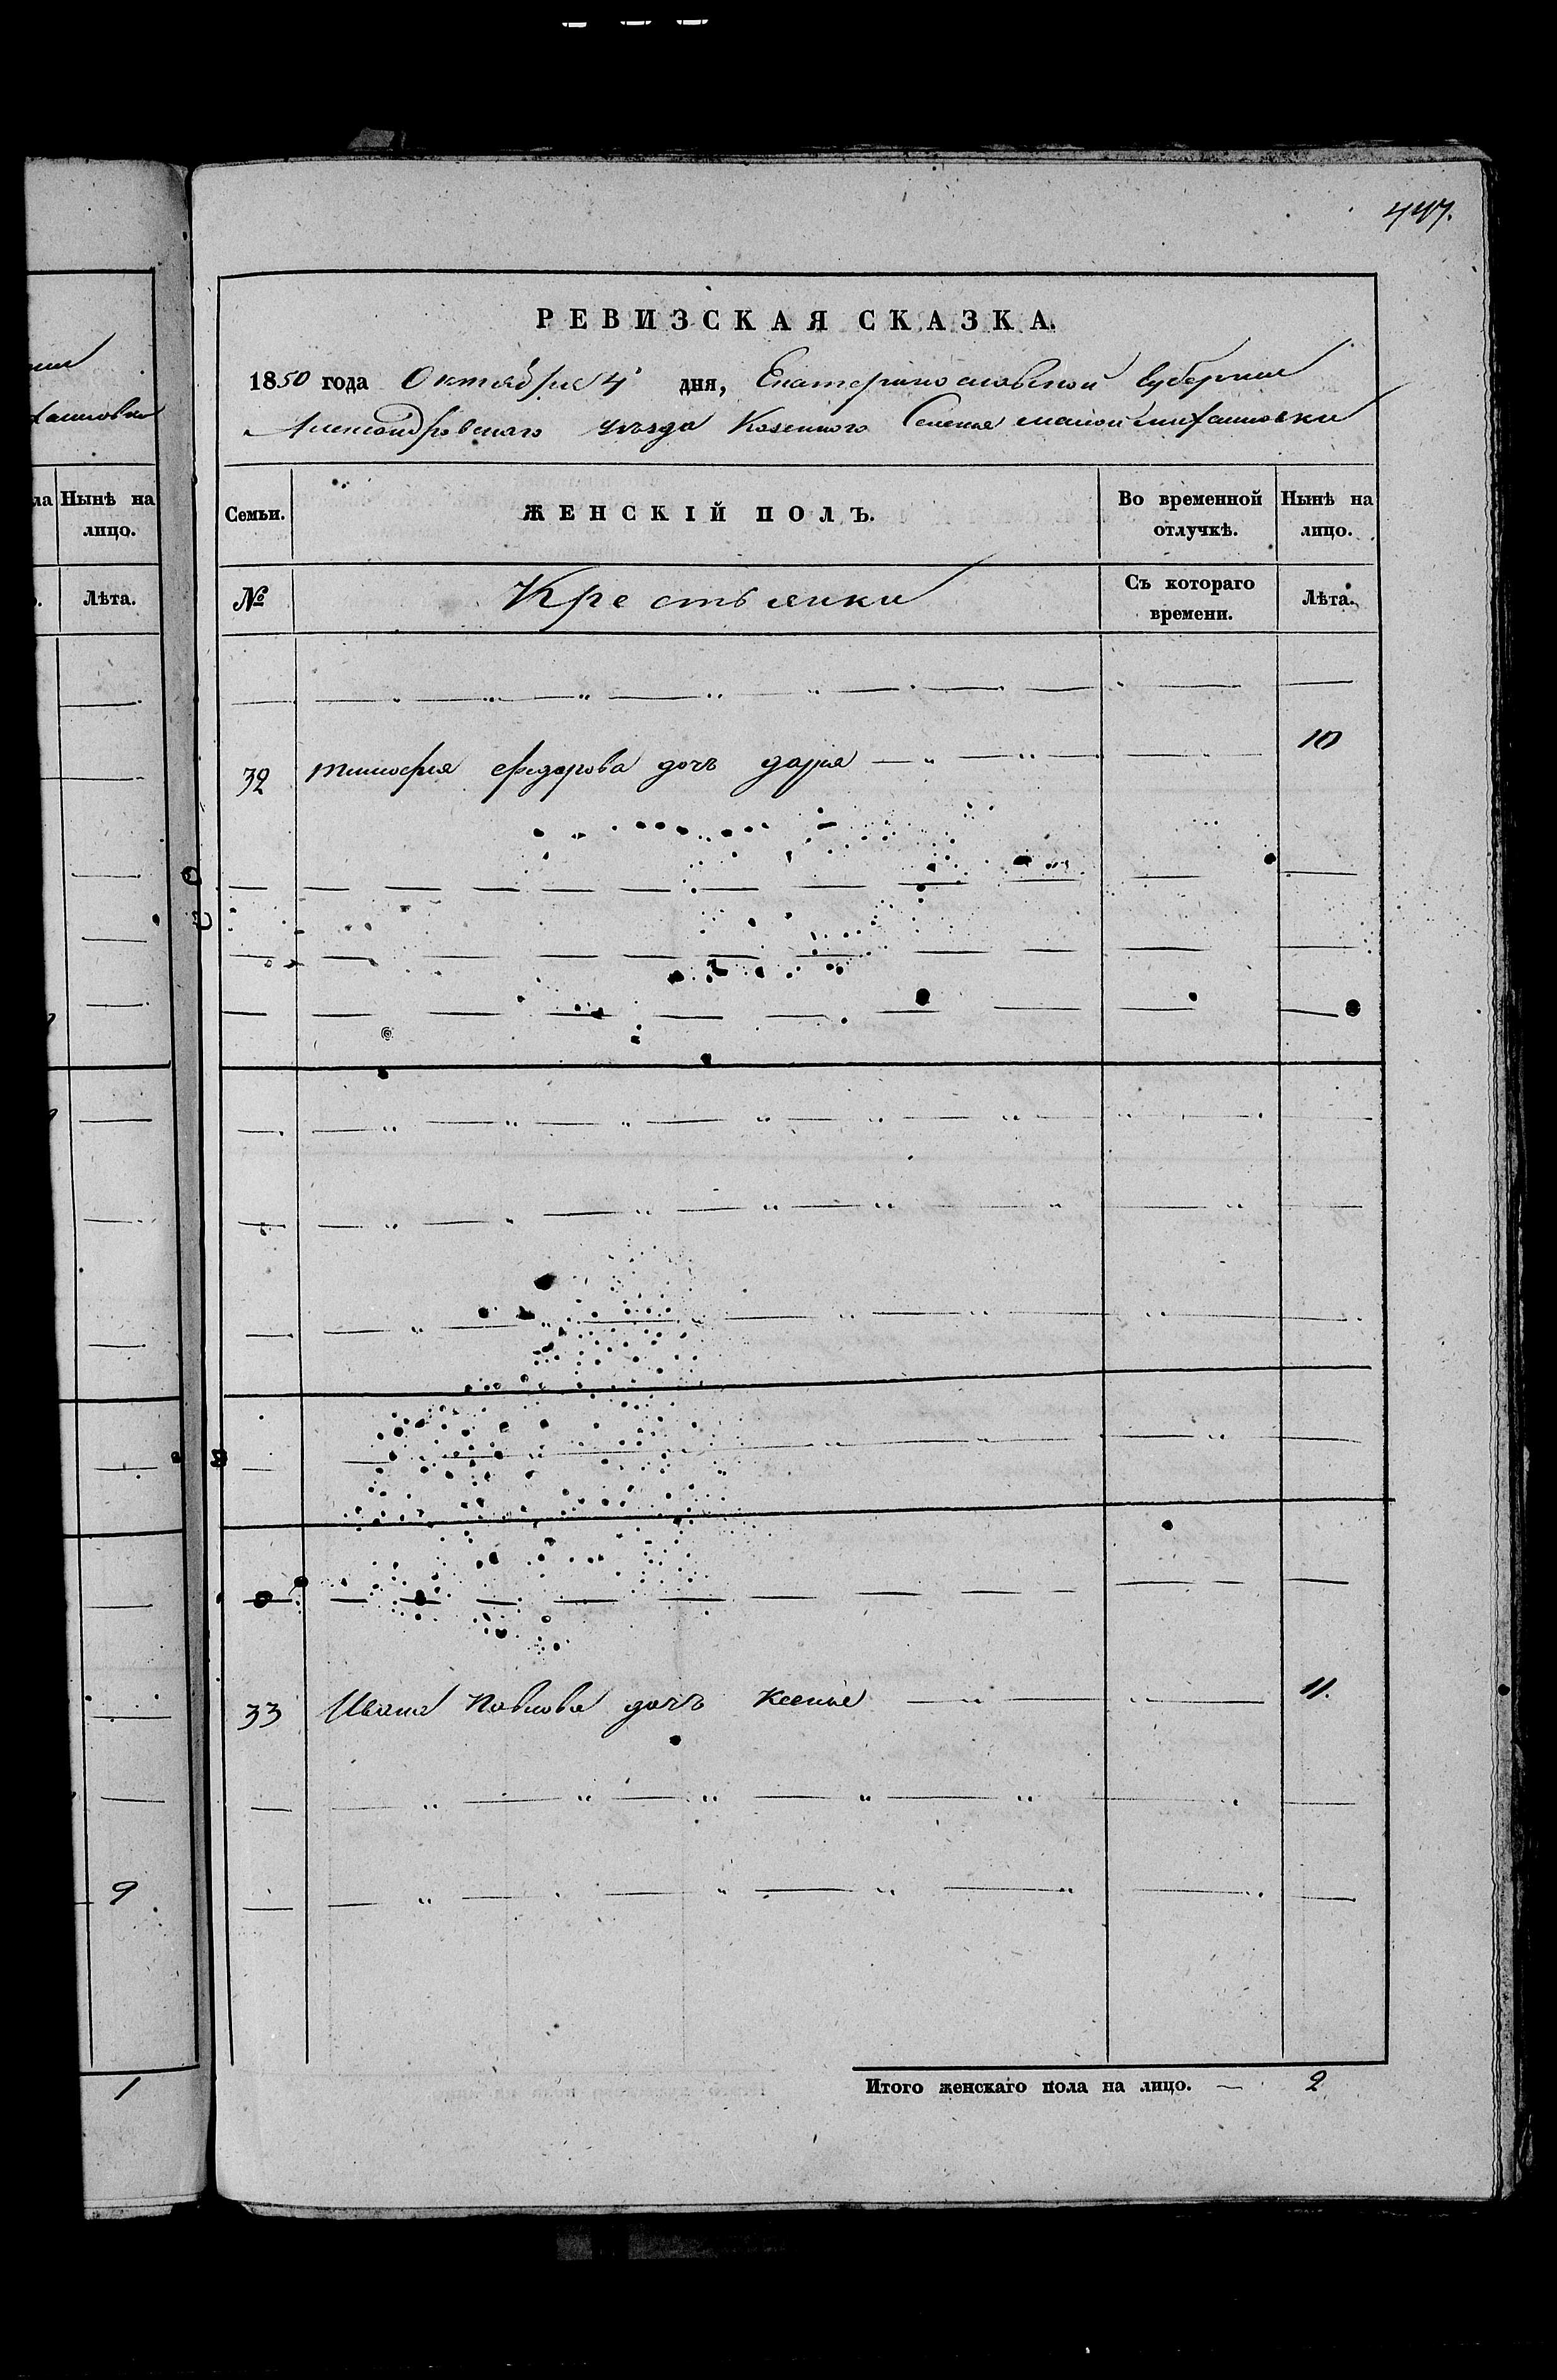 447.
РЕВИЗСКАЯ СКАЗКА.
1850 года Октября 4 дня, Екатеринославской Губернии
Александровскаго уѣзда Казенного Селения малой михайловки
ла Нынѣ на лицо.
Лѣта.
Семьи. ЖЕНСКІЙ ПОЛЪ. Во временной отлучкѣ. Нынѣ на лицо.
№ Крестьянки Съ котораго времени. Лѣта.
32 тимофея федорова дочь дарья 10
33 Ивана Павлова дочь Ксения 11.
9
1
Итого женскаго пола на лицо. — 2